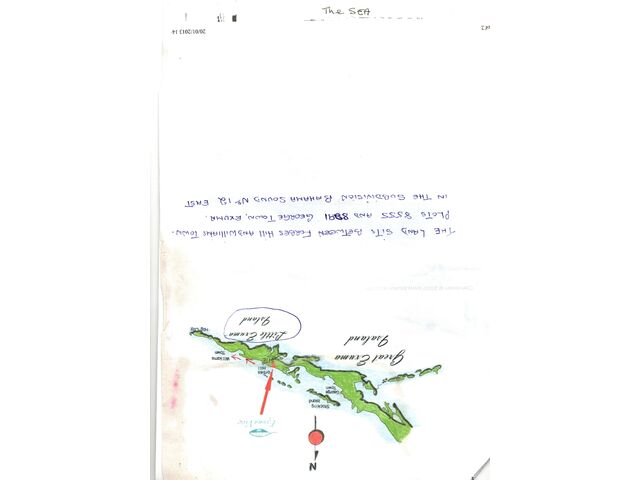 N
Stocking
Island
George
Town
Forbes
Hill
Williams
Town
Hog Cay
Great Exuma
Island
Little Exuma
Island
THE LAND SITS BETWEEN FORBES HILL AND WILLIAMS TOWN.
PLOTS 8555 AND GEORGE TOWN, EXUMA.
IN THE SUBDIVISION BAHAMA SOUND Nº 12 EAST
20/01/2013 14
The SEA